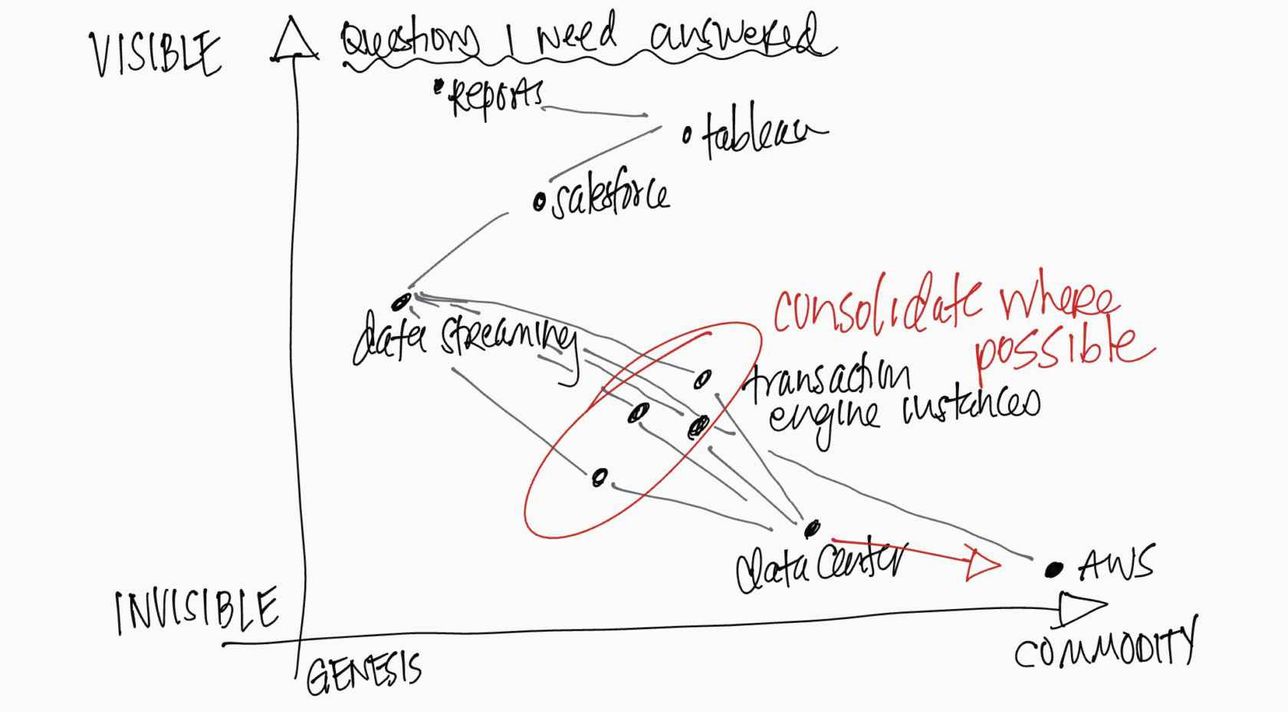 VISIBLE
Questions I need answered
Reports
tableau
salesforce
data streaming
consolidate where
possible
transaction
engine instances
data center
AWS
INVISIBLE
GENESIS
COMMODITY